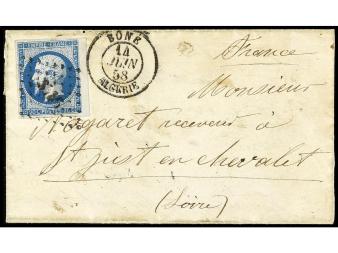 EMPIRE FRANC
BONE
14
JUIN
58
ALGÉRIE
France
Monsieur
receveur à
St Just en chevalet
(Loire)